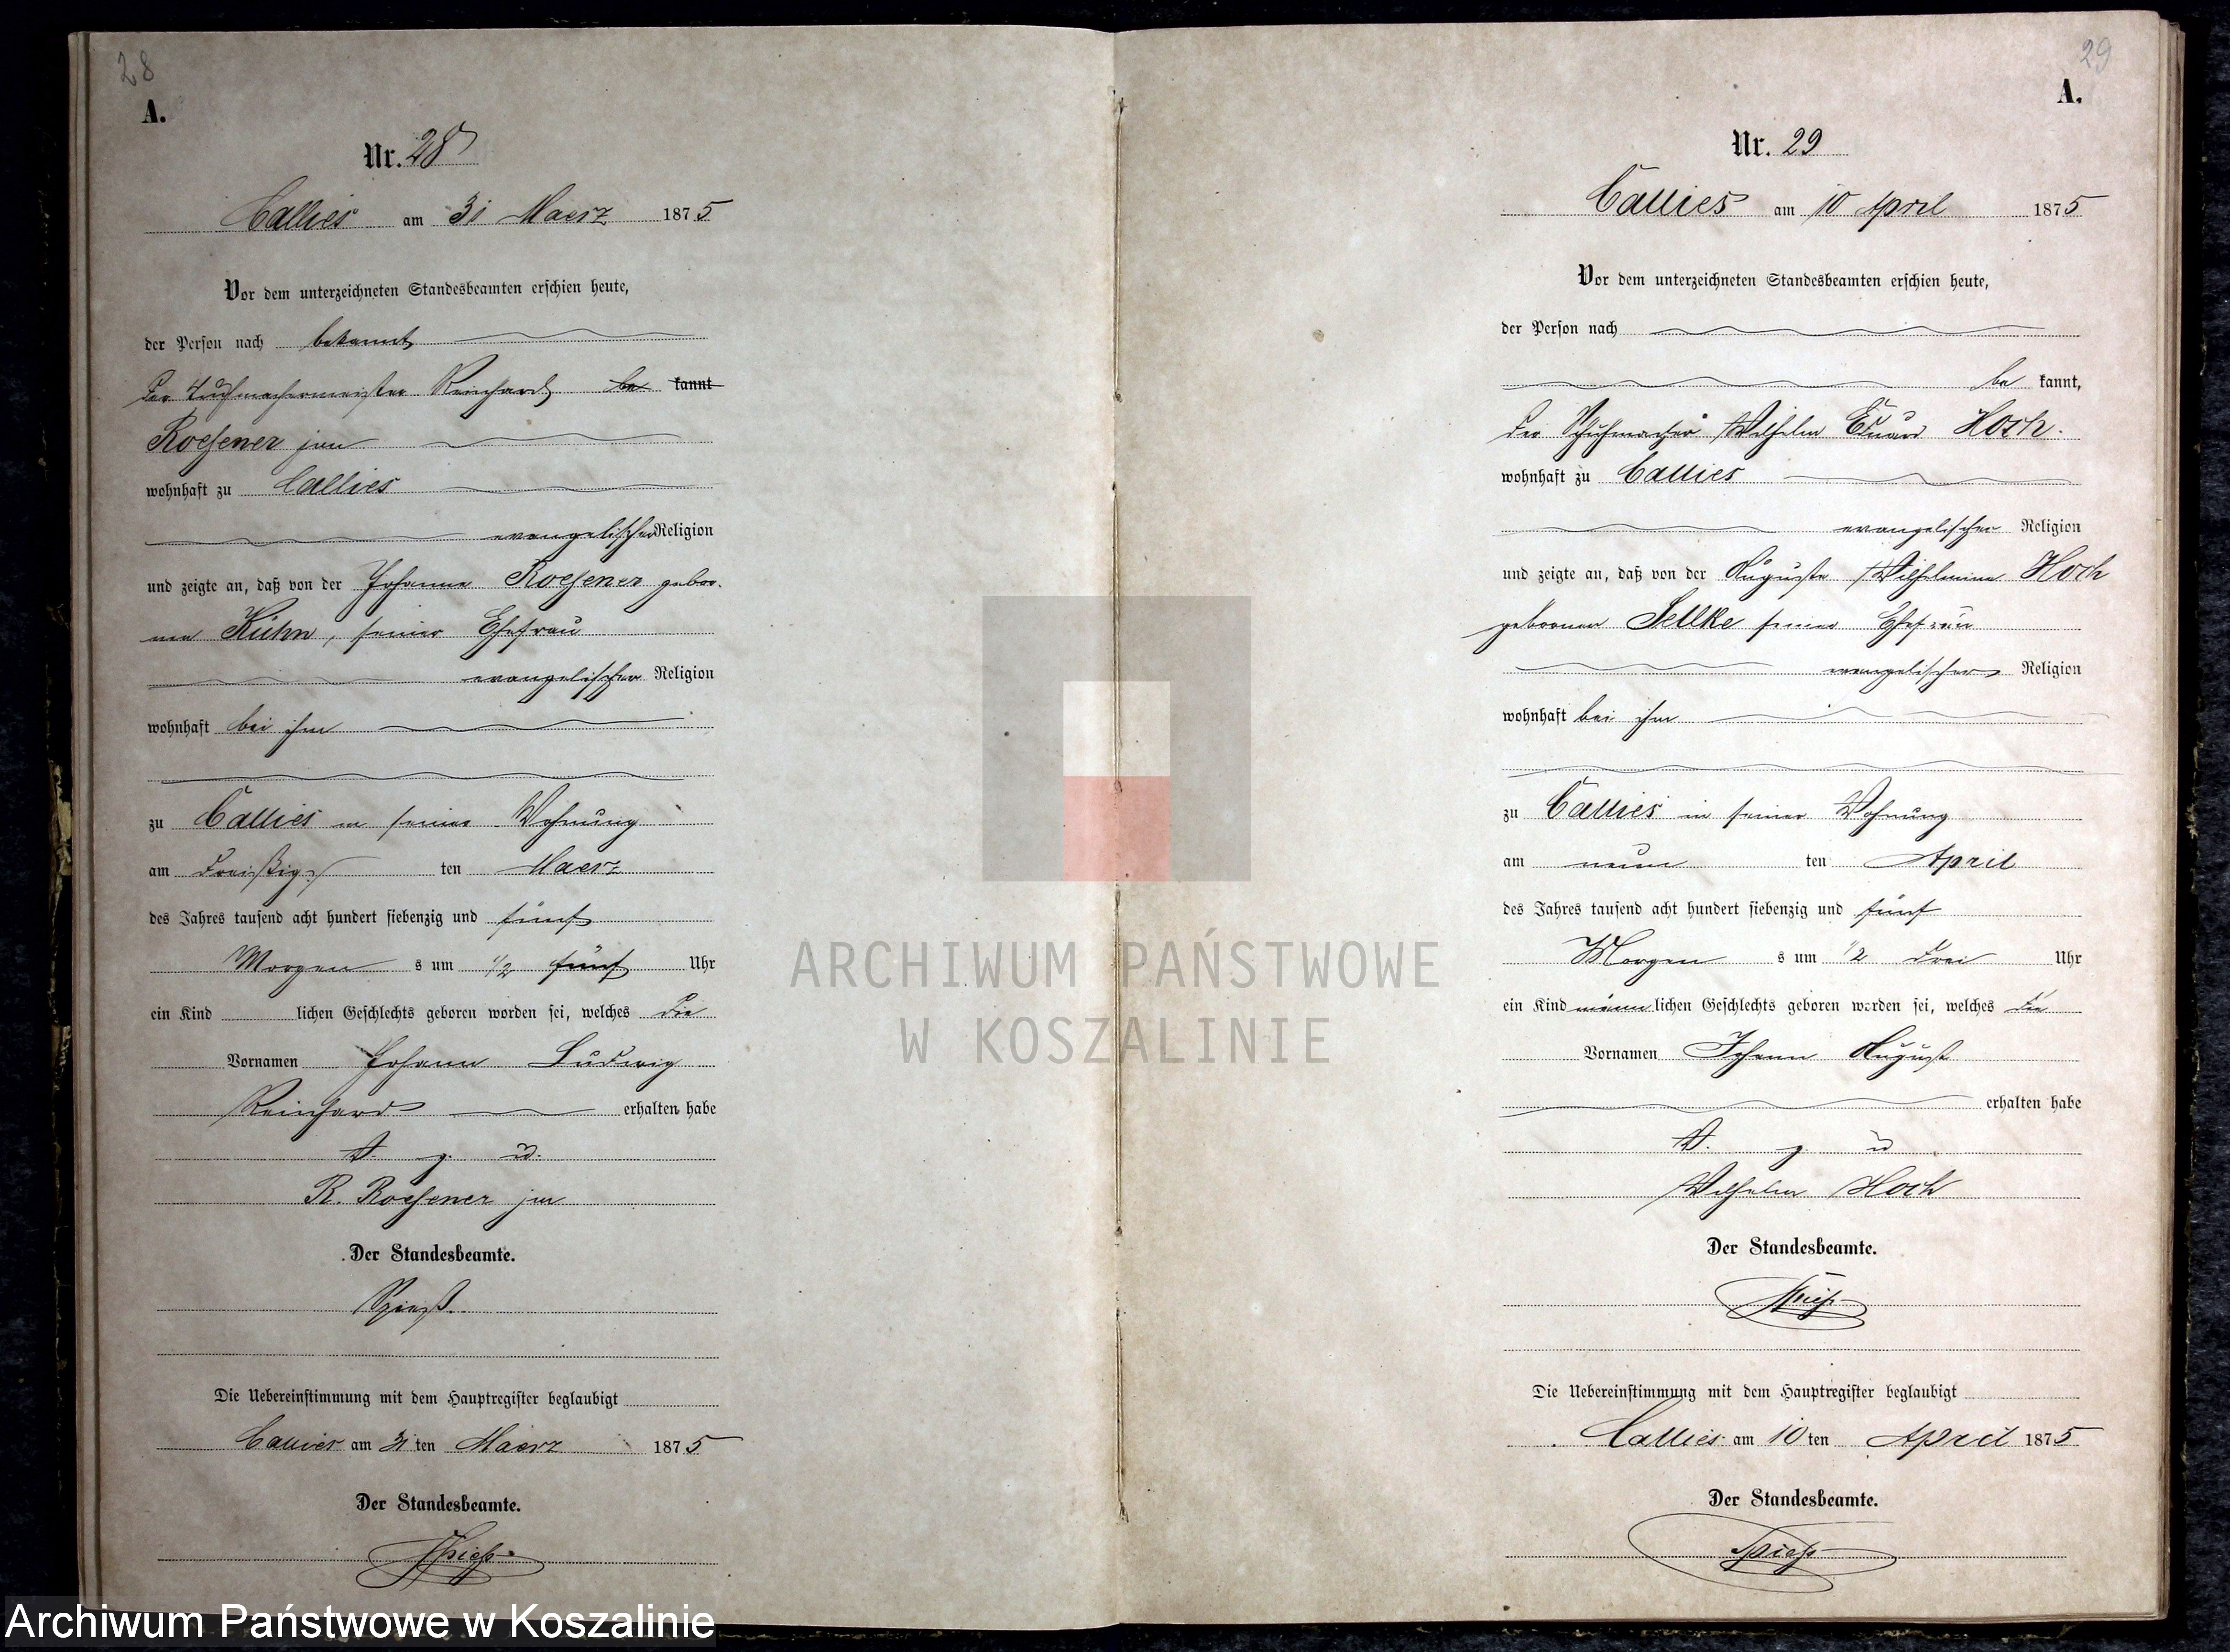 28
A.
Nr. 28
Callies am 31 Maerz 1875
Vor dem unterzeichneten Standesbeamten erschien heute,
der Person nach bekannt
der Tuchmachermeister Reinhard be kannt
Roesener jun
wohnhaft zu Callies
evangelischer Religion
und zeigte an, daß von der Johanna Roesener gebor-
nen Kühn, seiner Ehefrau
evangelischer Religion
wohnhaft bei ihm
zu Callies in seiner Wohnung
am dreißig ten Maerz
des Jahres tausend acht hundert siebenzig und fünf
Morgen s um 1/2 fünf Uhr
ein Kind lichen Geschlechts geboren worden sei, welches die
Vornamen Johann Ludwig
Reinhard erhalten habe
V. g. u.
R. Roesener jun
Der Standesbeamte.
Spieß.
Die Uebereinstimmung mit dem Hauptregister beglaubigt
Callies am 31 ten Maerz 1875
Der Standesbeamte.
Spiess
29
A.
Nr. 29
Callies am 10 April 1875
Vor dem unterzeichneten Standesbeamten erschien heute,
der Person nach
be kannt,
der Schuhmacher Wilhelm Eduard Hoch.
wohnhaft zu Callies
evangelischer Religion
und zeigte an, daß von der Auguste Wilhelmine Hoch
gebornen Sellke seiner Ehefrau
evangelischer Religion
wohnhaft bei ihm
zu Callies in seiner Wohnung
am neun ten April
des Jahres tausend acht hundert siebenzig und fünf
Morgen s um 1/2 drei Uhr
ein Kind männ lichen Geschlechts geboren worden sei, welches die
Vornamen Johann August
erhalten habe
V. g. u
Wilhelm Hoch
Der Standesbeamte.
Spiess
Die Uebereinstimmung mit dem Hauptregister beglaubigt
Callies am 10 ten April 1875
Der Standesbeamte.
Spiess
ARCHIWUM PAŃSTWOWE
W KOSZALINIE
Archiwum Państwowe w Koszalinie